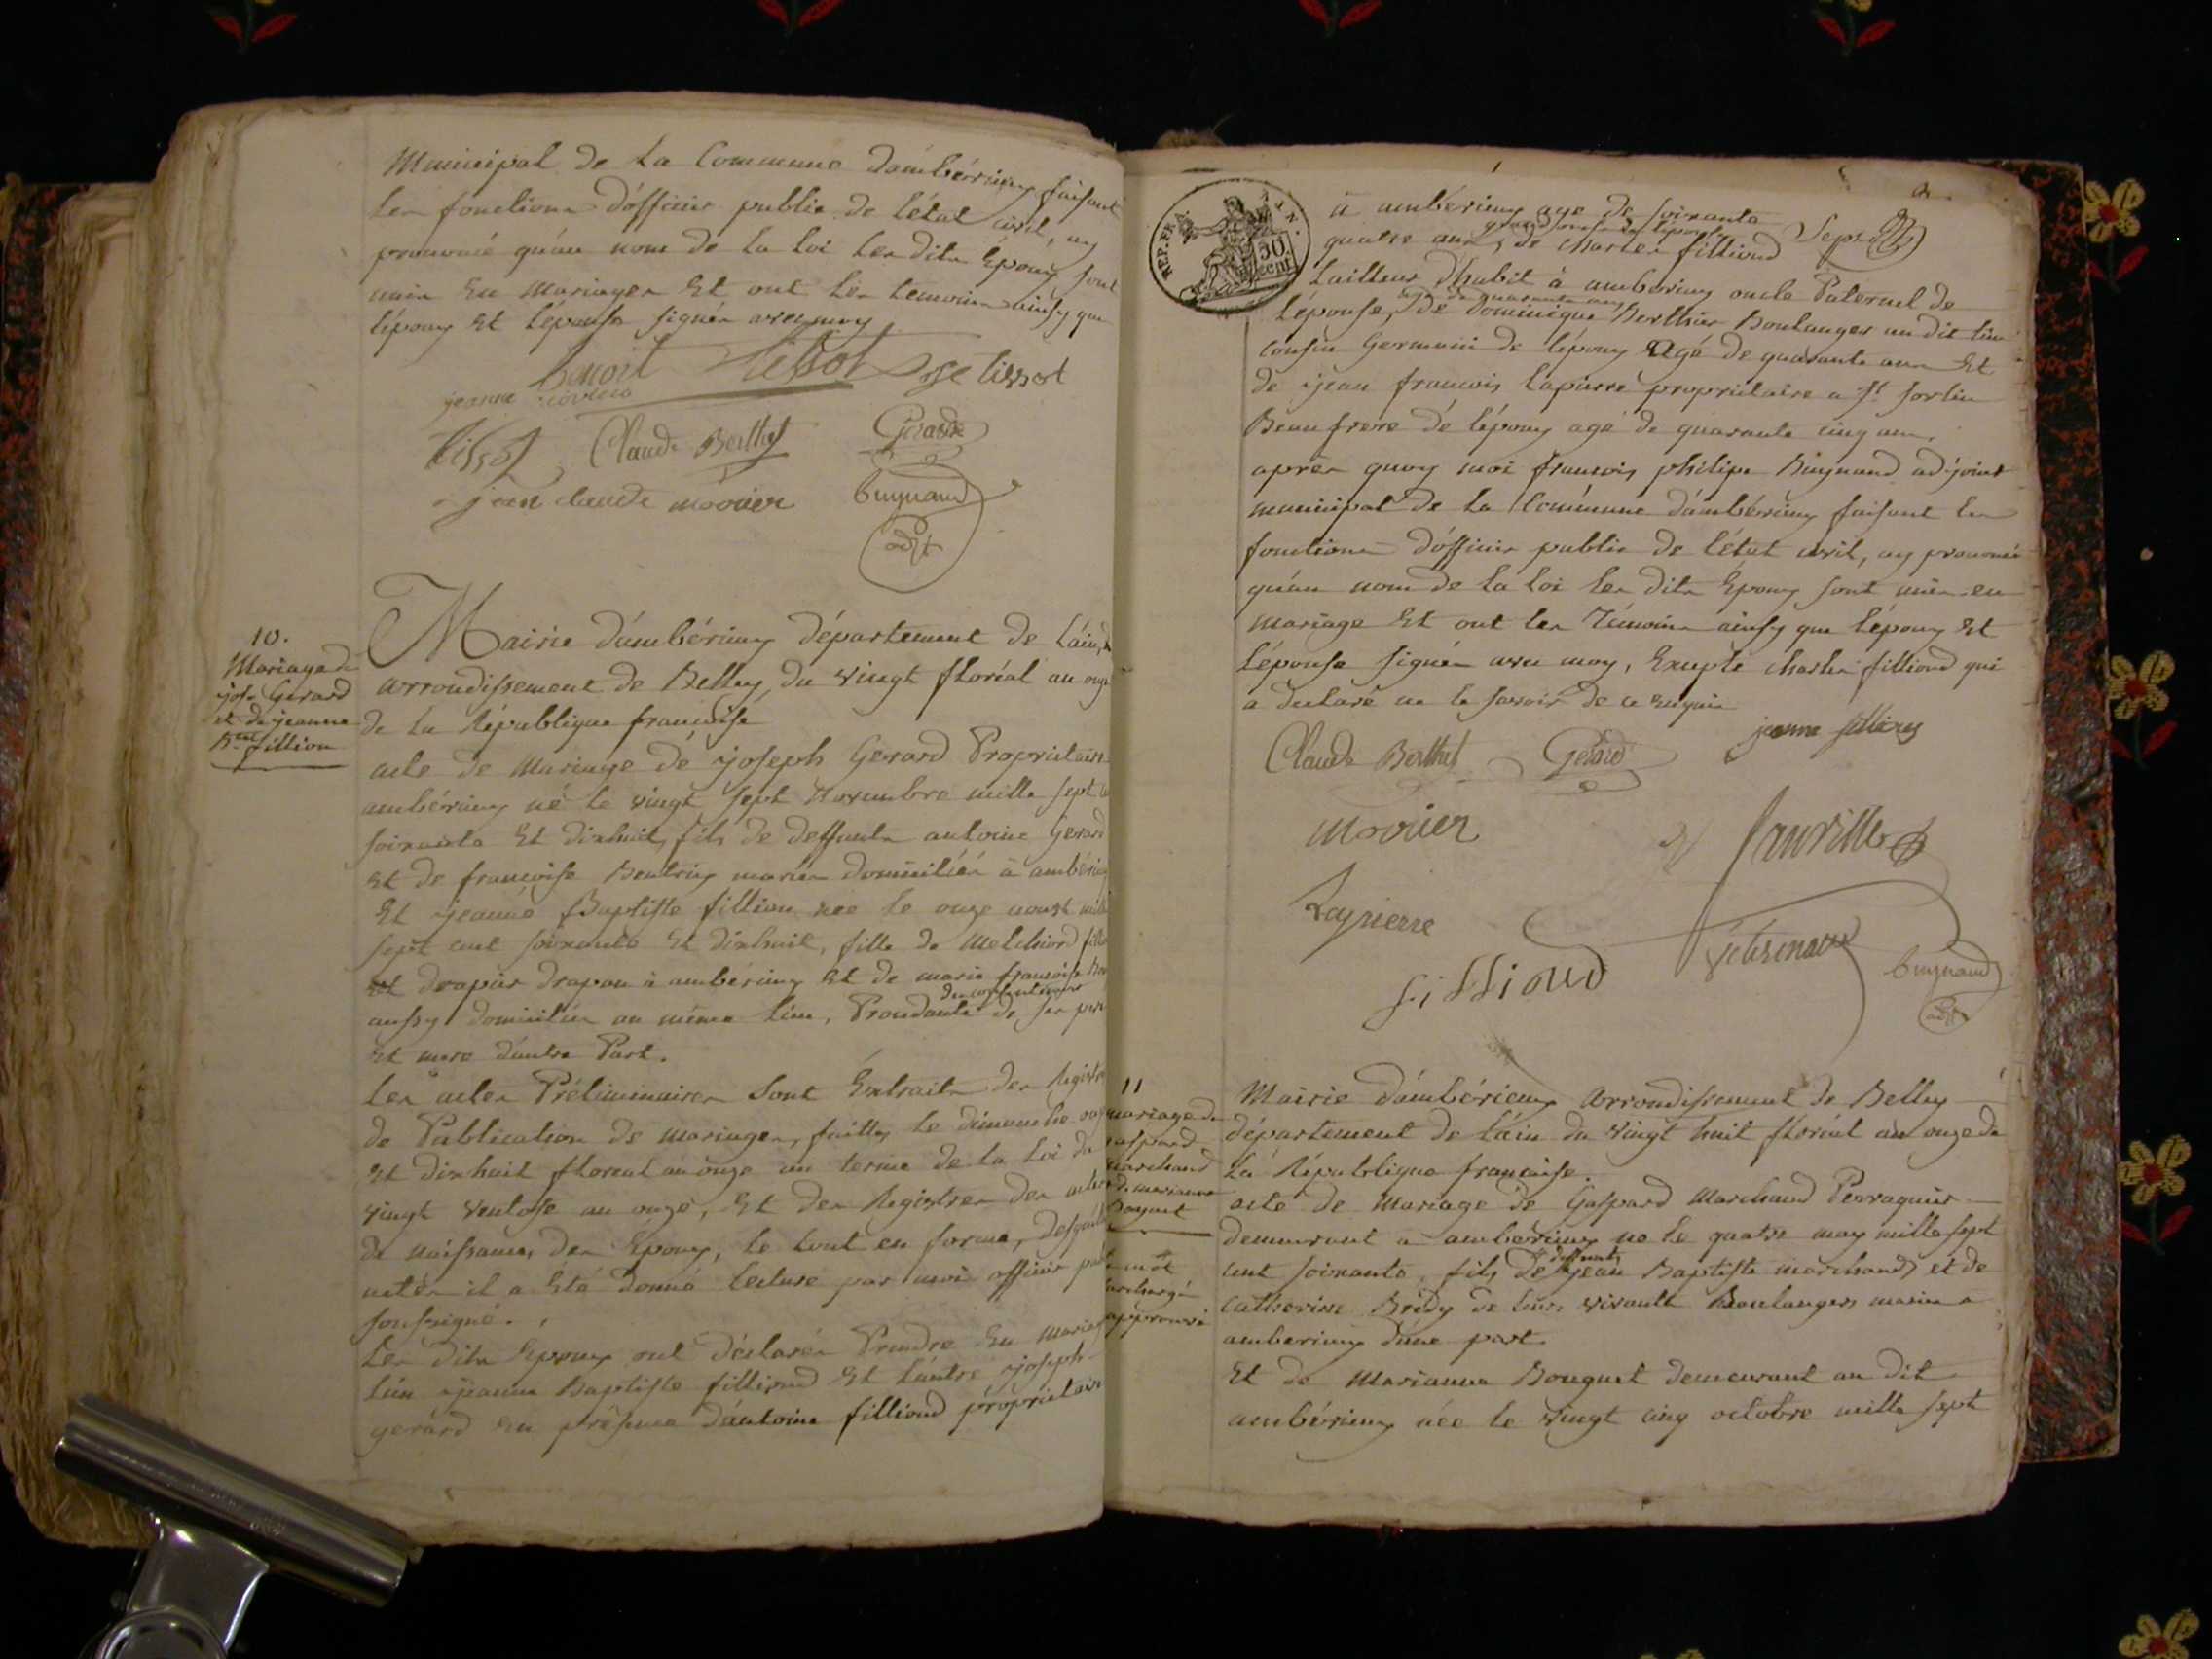 Municipal de la Commune dámbérieux faisant
les fonctions dófficier public de létat civil, ay
prononcé quáu nom de la loi les dits Epoux sont
unis En Mariages Et ont les temoins ainsy que
lépoux Et lépouse signés avec moy
Benoit tissot tissot
jeanne
tissot Claude Berthet Gerard
jean claude movier buynand
adjt
10.
Mariage de
josh Gerard
et de jeanne
Bte fillion
Mairie dámbérieux département de Láin,
arrondissement de Belley, du vingt floréal an onze
de la République francaise
acte de Mariage de joseph Gerard Propriétaire
ambérieux né le vingt sept Novembre mille sept
soixante Et dixhuit, fils de deffunts antoine Gerard
Et de francoise mariés domiciliés à ambérieux
Et jeanne Baptiste fillion née le onze aoust mille
sept cent soixante Et dixhuit, fille de Melchiord
drapier drapan à ambérieux Et de marie francoise
du consentement
aussy domiciliés au même lieu, Procédante de ses pere
Et mere dáutre Part.
Les actes Préliminaires sont Extraits des Registres
de Publication de mariages, faittes le dimanche onze
Et dixhuit floreal an onze au terme de la Loi du
vingt ventose an onze, Et des Registres des actes
de naissance, des Epoux, le tout en forme, desquels
actes il a Eté donné lecture par moi officier public
soussigné.
Les dits Epoux ont déclaré Prendre En Mariage
lún jeanne Baptiste filliond Et láutre joseph
gerard En présence dántoine filliond propriétaire
REP. FRA.
50 cent
à ambérieux age de soixante
quatre ans, de Charles filliond
tailleur d'habit à ambérieux oncle Paternel de
agé de quarante ans
Lépouse, de Dominique Berthier Boulanger au dit lieu
cousin Germain de lépoux agé de quarante ans Et
de jean francois lapierre propriétaire a St sorlin
Beaufrere de lépoux agé de quarante cinq ans.
après quoy moi francois philipe Buynand adjoint
municipal de la Commune dámbérieux faisant les
fonctions dófficier public de létat civil, ay prononcé
quáu nom de la loi les dits Epoux sont unis en
mariage Et ont les Témoins ainsy que lépoux Et
Lépouse signés avec moy, Excepté charles filliond qui
a declaré ne le savoir de ce Enquis
jeanne fillion
Claude Berthet Gerard
movier
Lapierre
fillioud
buynand
adjt
11
mariage de
gaspard
marchand
de marianne
Bouquet
mot
surchargé
approuvé
Mairie dámbérieux arrondissement de Belley
département de láin du vingt huit floréal an onze de
la République francaise
acte de Mariage de Gaspard Marchand Perraquier
demeurant a ambérieux né le quatre may mille sept
deffunts
cent soixante, fils de jean Baptiste marchand, et de
Catherine Brédy de leurs vivants Boulangers mariés a
ambérieux dúne part.
Et de Marianne Bouquet demeurant au dit
ambérieux née le vingt cinq octobre mille sept